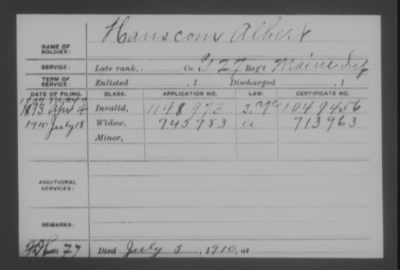 Hanscom Albert
NAME OF SOLDIER:
SERVICE: Late rank, Co. I 27 Reg't Maine Inf
TERM OF SERVICE: Enlisted , 1 Discharged , 1
DATE OF FILING. CLASS. APPLICATION NO. LAW. CERTIFICATE NO.
1893 Apr Invalid, 1148973 1049456
1910 July 18 Widow, 945783 a 713963
Minor,
ADDITIONAL SERVICES:
REMARKS:
Died July 5, 1910, at